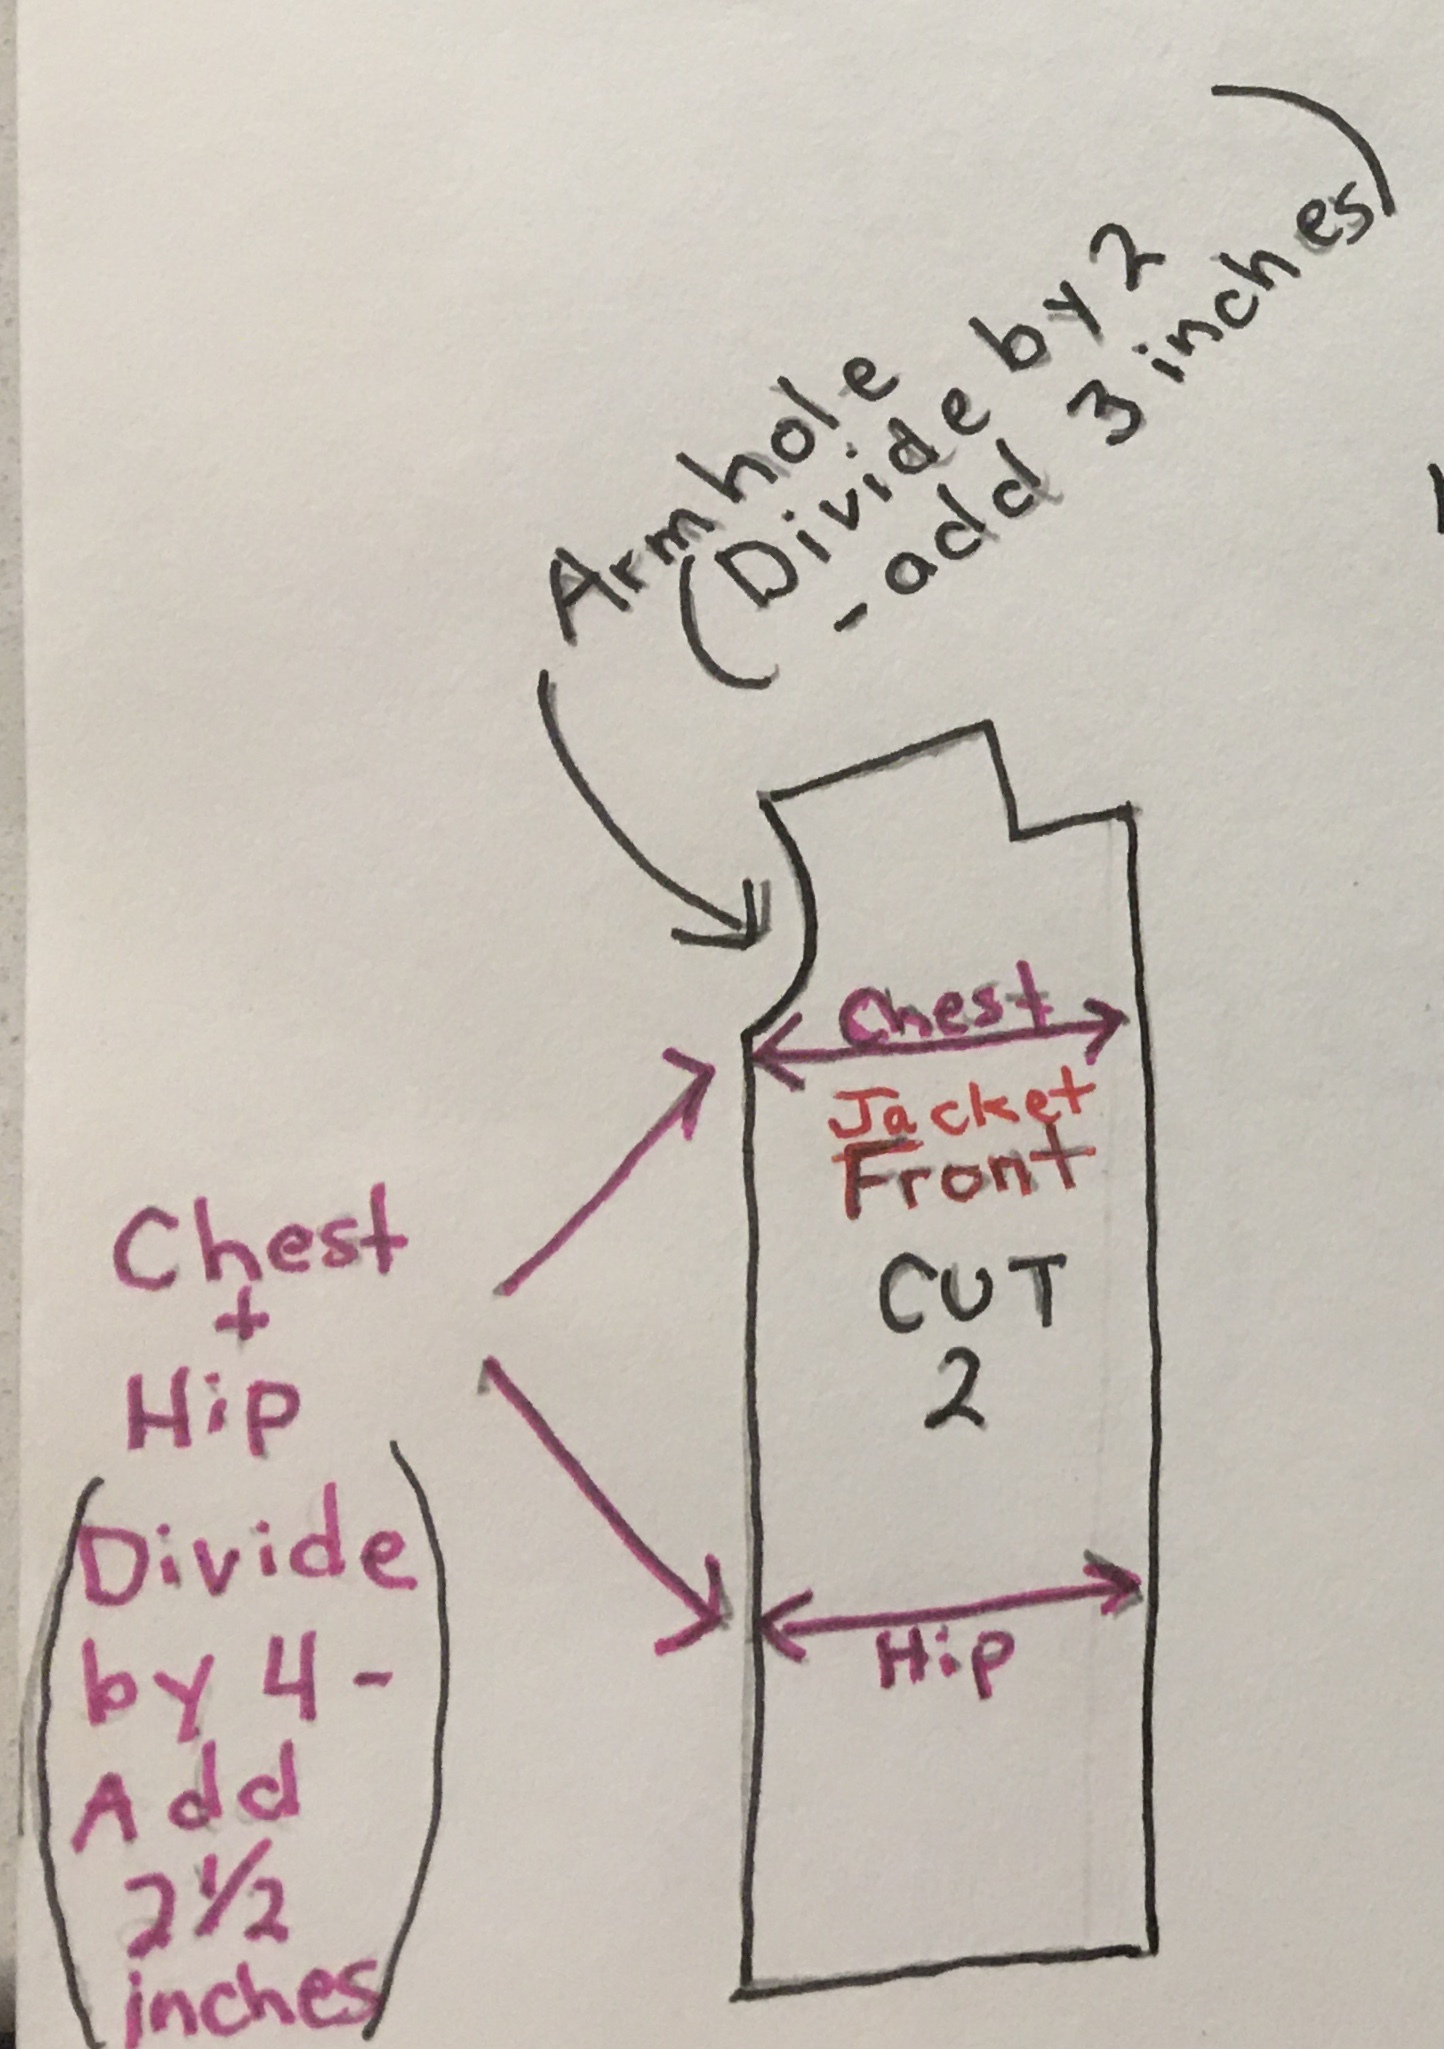 Armhole
(Divide by 2
- add 3 inches)
Chest
Jacket
Front
CUT
2
Hip
Chest
+
Hip
(Divide
by 4 -
Add
2 1/2
inches)